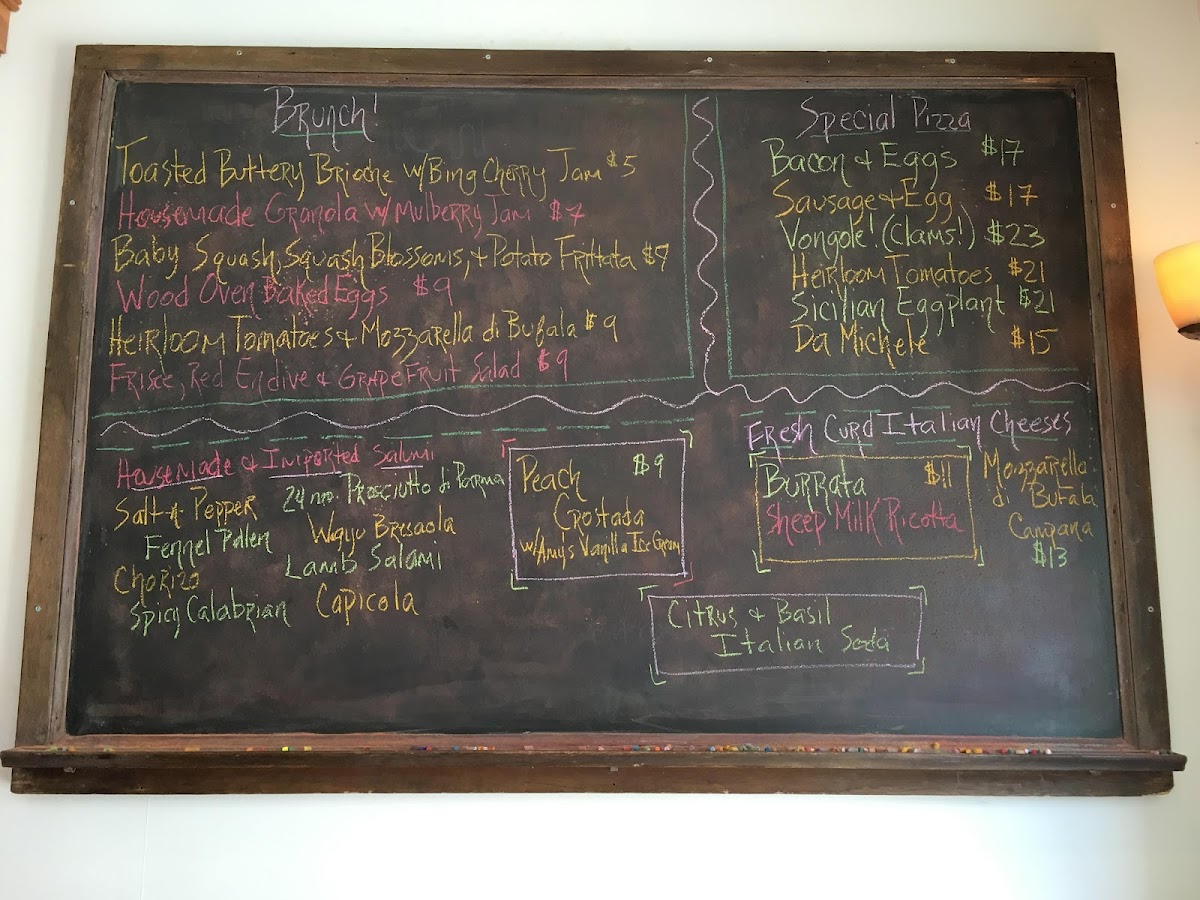 Brunch!
Toasted Buttery Brioche w/Bing Cherry Jam $5
Housemade Granola w/Mulberry Jam $7
Baby Squash, Squash Blossoms, & Potato Frittata $9
Wood Oven Baked Eggs $9
Heirloom Tomatoes & Mozzarella di Bufala $9
Frisee, Red Endive & Grapefruit Salad $9
Special Pizza
Bacon & Eggs $17
Sausage & Egg $17
Vongole! (Clams!) $23
Heirloom Tomatoes $21
Sicilian Eggplant $21
Da Michele $15
Housemade & Imported Salumi
Salt & Pepper
Fennel Pollen
Chorizo
Spicy Calabrian
24 mo. Prosciutto di Parma
Wagyu Bresaola
Lamb Salami
Capicola
Peach $9
Crostada
w/Amy's Vanilla Ice Cream
Fresh Curd Italian Cheeses
Burrata $11
Sheep Milk Ricotta
Mozzarella
di Bufala
Campana
$13
Citrus & Basil
Italian Soda